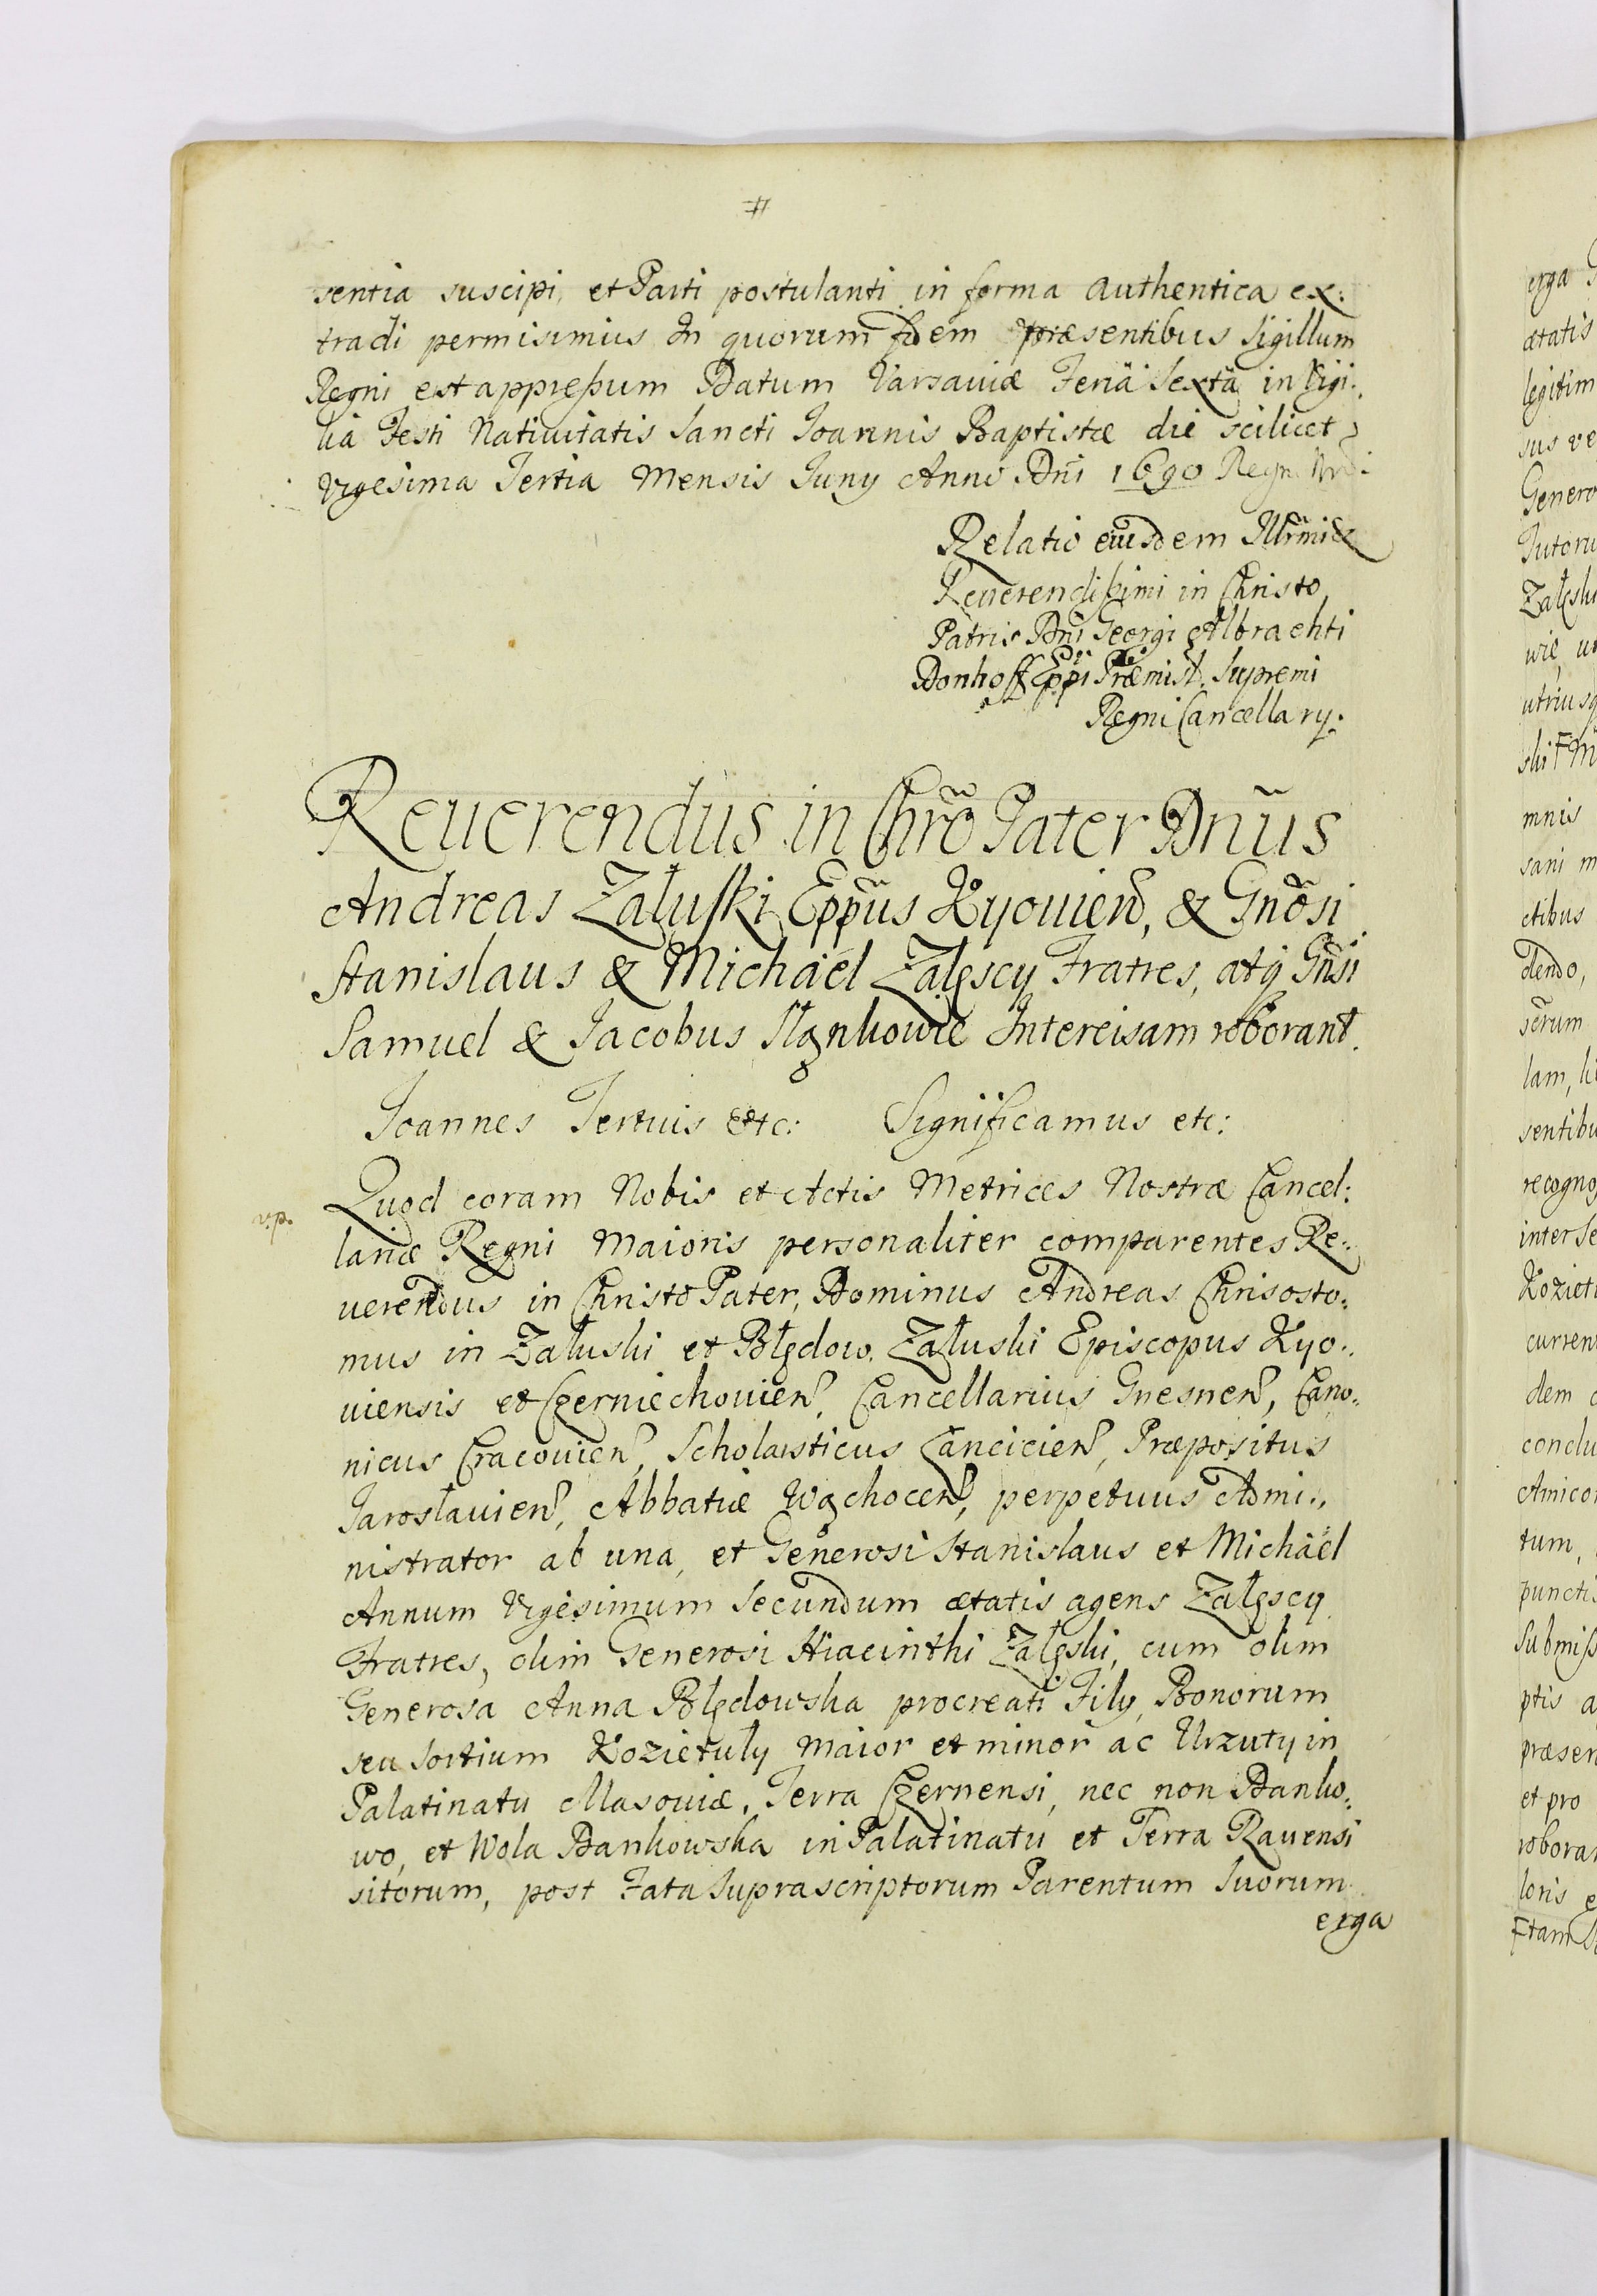 sentia suscipi, et Parti postulanti in forma Authentica ex:
tradi permisimus In quorum fidem præsentibus Sigillum
Regni est appreßum Datum Varsaviæ Feriâ Sextâ in Vigi:
lia Festi Nativitatis Sancti Joannis Baptistæ die scilicet
Vigesima Tertia Mensis Juny Anno Dñi 1690 Regn.
Relatio eiusdem Illrmi &
Reuerendißimi in Christo
Patris Dñi Georgi Albrachti
Donhoff Eppi Præmisl. Supremi
Regni Cancellary.
Reuerendus in Chrõ Pater Dñus
Andreas Załuski Eppũs Kyouien, & Gnõsi
Stanislaus & Michaël Załęscy Fratres, atq Gñsi
Samuel & Jacobus Intercisam roborant.
Joannes Tertius etc: Significamus etc:
Quod coram Nobis et Actis Metrices Nostræ Cancel:
v.p.
lariæ Regni Maioris personaliter comparentes Re:
uerendus in Christo Pater, Dominus Andreas Chrisosto:
mus in Załuski et Błędow. Załuski Episcopus Kyo:
uiensis et Czerniechouien, Cancellarius Gnesnen, Cano:
nicus Cracouien, Scholasticus Lancicien, Præpositus
Jarosłauien, Abbatiæ Wąchocen, perpetuus Admi:
nistrator ab una, et Generosi Stanislaus et Michaël
Annum Vigesimum Secundum ætatis agens Załęscy
Fratres, olim Generosi Hiacinthi Załęski, cum olim
Generosa Anna Błędowska procreati Fily, Bonorum
seu Sortium Kozietuły Maior et minor ac Urzuty in
Palatinatu Masouiæ, Terra Czernensi, nec non Danko:
wo, et Wola Dankowska in Palatinatu et Terra Rauensi
sitorum, post Fata Suprascriptorum Parentum Suorum
erga